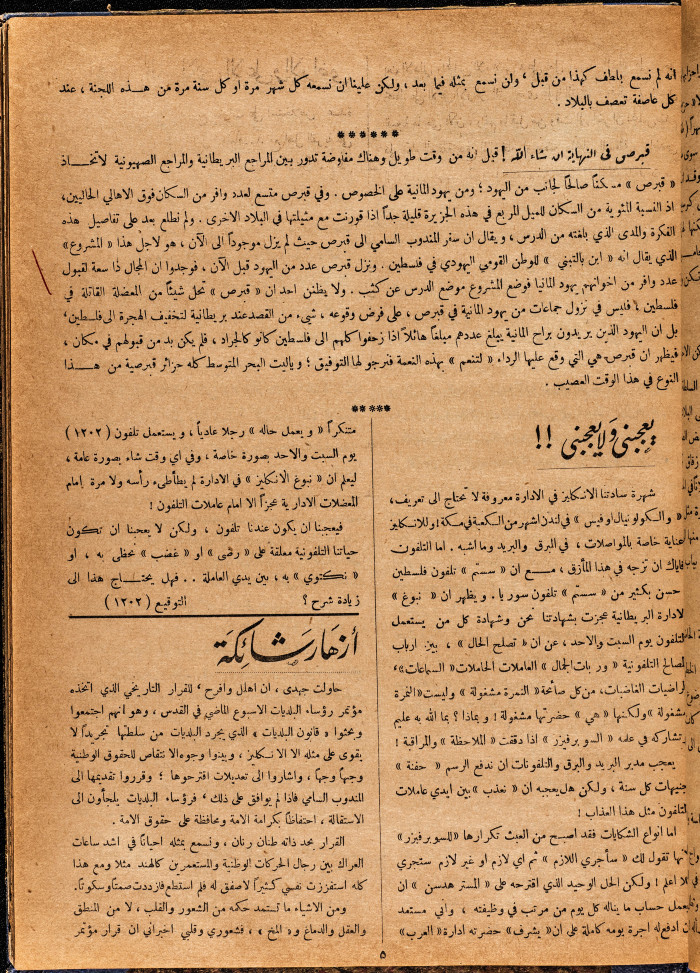 انه لم نسمع بلطف كهذا من قبل ، ولن نسمع بمثله فيما بعد ، ولكن علينا ان نسمعه كل شهر مرة او كل سنة مرة من هــذه اللجنة ، عند
كل عاصفة تعصف بالبلاد .
******
قبرص في النهاية ان شاء الله ! قيل انه من وقت طويل وهناك مفاوضة تدور بين المراجع البريطانية والمراجع الصهيونية لاتخــاذ
« قبرص » مسكناً صالحاً لجانب من اليهود ؛ ومن يهود المانية على الخصوص . وفي قبرص متسع لعدد وافر من السكان فوق الاهالي الحاليين ،
اذ النسبة المئوية من السكان للميل المربع في هذه الجزيرة قليلة جداً اذا قورنت مع مثيلتها في البلاد الاخرى . ولم نطلع بعد على تفاصيل هذه
الفكرة والمدى الذي بلغته من الدرس ، ويقال ان سفر المندوب السامي الى قبرص حيث لم يزل موجوداً الى الآن ، هو لاجل هذا « المشروع»
الذي يقال انه « ابن بالتبني » للوطن القومي اليهودي في فلسطين . ونزل قبرص عدد من اليهود قبل الآن ، فوجدوا ان المجال ذا سعة لقبول
عدد وافر من اخوانهم يهود المانيا فوضع المشروع موضع الدرس عن كثب . ولا يظنن احد ان « قبرص » تحل شيئاً من المعضلة القائمة في
فلسطين ؛ فليس في نزول جماعات من يهود المانية في قبرص ، على فرض وقوعه ، شيء من القصد عند بريطانية لتخفيف الهجرة الى فلسطين ،
بل ان اليهود الذين يريدون براح المانية يبلغ عددهم مبلغاً هائلاً اذا زحفوا كلهم الى فلسطين كانوا كالجراد ، فلم يكن بد من قبولهم في مكان ،
فيظهر ان قبرص هي التي وقع عليها الرداء « لتنعم » بهذه النعمة فنرجو لها التوفيق ؛ وياليت البحر المتوسط كله جزائر قبرصية من هــذا
النوع في هذا الوقت العصيب .
*****
يعجبني ولا يعجبني !!
شهرة سادتنا الانكليز في الادارة معروفة لا تحتاج الى تعريف ،
« والكولونيال اوفيس » في لندن اشهر من الكعبة في مكة ! وللانكليز
عناية خاصة بالمواصلات ، في البرق والبريد وما اشبه . اما التلفون
فاياك ان تزجه في هذا المأزق ، مــع ان « سستم » تلفون فلسطين
حسن بكثير من « سستم » تلفون سوريا . ويظهر ان « نبوغ »
الادارة البريطانية عجزت بشهادتنا نحن وشهادة كل من يستعمل
التلفون يوم السبت والاحد ، عن ان « تصلح الحال » ، بين ارباب
المصالح التلفونية « وربات الجمال » العاملات الحاملات « السماعات»،
الراضيات الغاضبات ، من كل صائحة « النمرة مشغولة » وليست « النمرة
مشغولة » ولكنها « هي » حضرتها مشغولة ! وبماذا ؟ بما الله به عليم
وتشاركه في علمه « السوبرفيزر » اذا دققت « الملاحظة » والمراقبة !
يعجب مدير البريد والبرق والتلفونات ان ندفع الرسم « حفنة »
جنيهات كل سنة ، ولكن هل يعجبه ان « نعذب » بين ايدي عاملات
التلفون مثل هذا العذاب !
اما انواع الشكايات فقد اصبح من العبث تكرارها « للسوبرفيزر»
لانها تقول لك « سأجري اللازم » ثم اي لازم او غير لازم ستجري
لا اعلم ! ولكن الحل الوحيد الذي اقترحه على « المستر هدسن » ان
يعمل حساب ما يناله كل يوم من مرتب في وظيفته ، واني مستعد
ان ادفع له اجرة يومه كاملة على ان « يشرف » حضرته ادارة « العرب»
متنكراً « ويعمل حاله » رجلا عادياً ، ويستعمل تلفون ( ١٢٠٢ )
يوم السبت والاحد بصورة خاصة ، وفي اي وقت شاء بصورة عامة ،
ليعلم ان « نبوغ الانكليز » في الادارة لم يطأطىء رأسه ولا مرة امام
المعضلات الادارية عجزاً الا امام عاملات التلفون !
فيعجبنا ان يكون عندنا تلفون ، ولكن لا يعجبنا ان تكون
حياتنا التلفونية معلقة على « رضى » او « غضب » نحظى به ، او
« نكتوي » به ، بين يدي العاملة .. فهل يحتــاج هذا الى
زيادة شرح ؟ التوقيع ( ١٢٠٢ )
أزهار شائكة
حاولت جهدي ، ان اهلل وافرح ، للقرار التاريخي الذي اتخذه
مؤتمر رؤساء البلديات الاسبوع الماضي في القدس ، وهو انهم اجتمعوا
وبحثوا « قانون البلديات » الذي يجرد البلديات من سلطتها تجريداً لا
يقوى على مثله الا الانكليز ، وبينوا وجوه الانتقاص للحقوق الوطنية
وجهاً وجهاً ، واشاروا الى تعديلات اقترحوها ؛ وقرروا تقديمها الى
المندوب السامي فاذا لم يوافق على ذلك ، فرؤساء البلديات يلجأون الى
الاستقالة ، احتفاظاً بكرامة الامة ومحافظة على حقوق الامة .
القرار بحد ذاته طنان رنان ، ونسمع بمثله احياناً في اشد ساعات
العراك بين رجال الحركات الوطنية والمستعمرين كالهند مثلا ومع هذا
كله استفززت نفسي كثيراً لاصفق له فلم استطع فازددت صمتاً وسكوتاً.
ومن الاشياء ما تستمد حكمه من الشعور والقلب ، لا من المنطق
والعقل والدماغ و« المخ » ، فشعوري وقلبي اخبراني ان قرار مؤتمر
٥